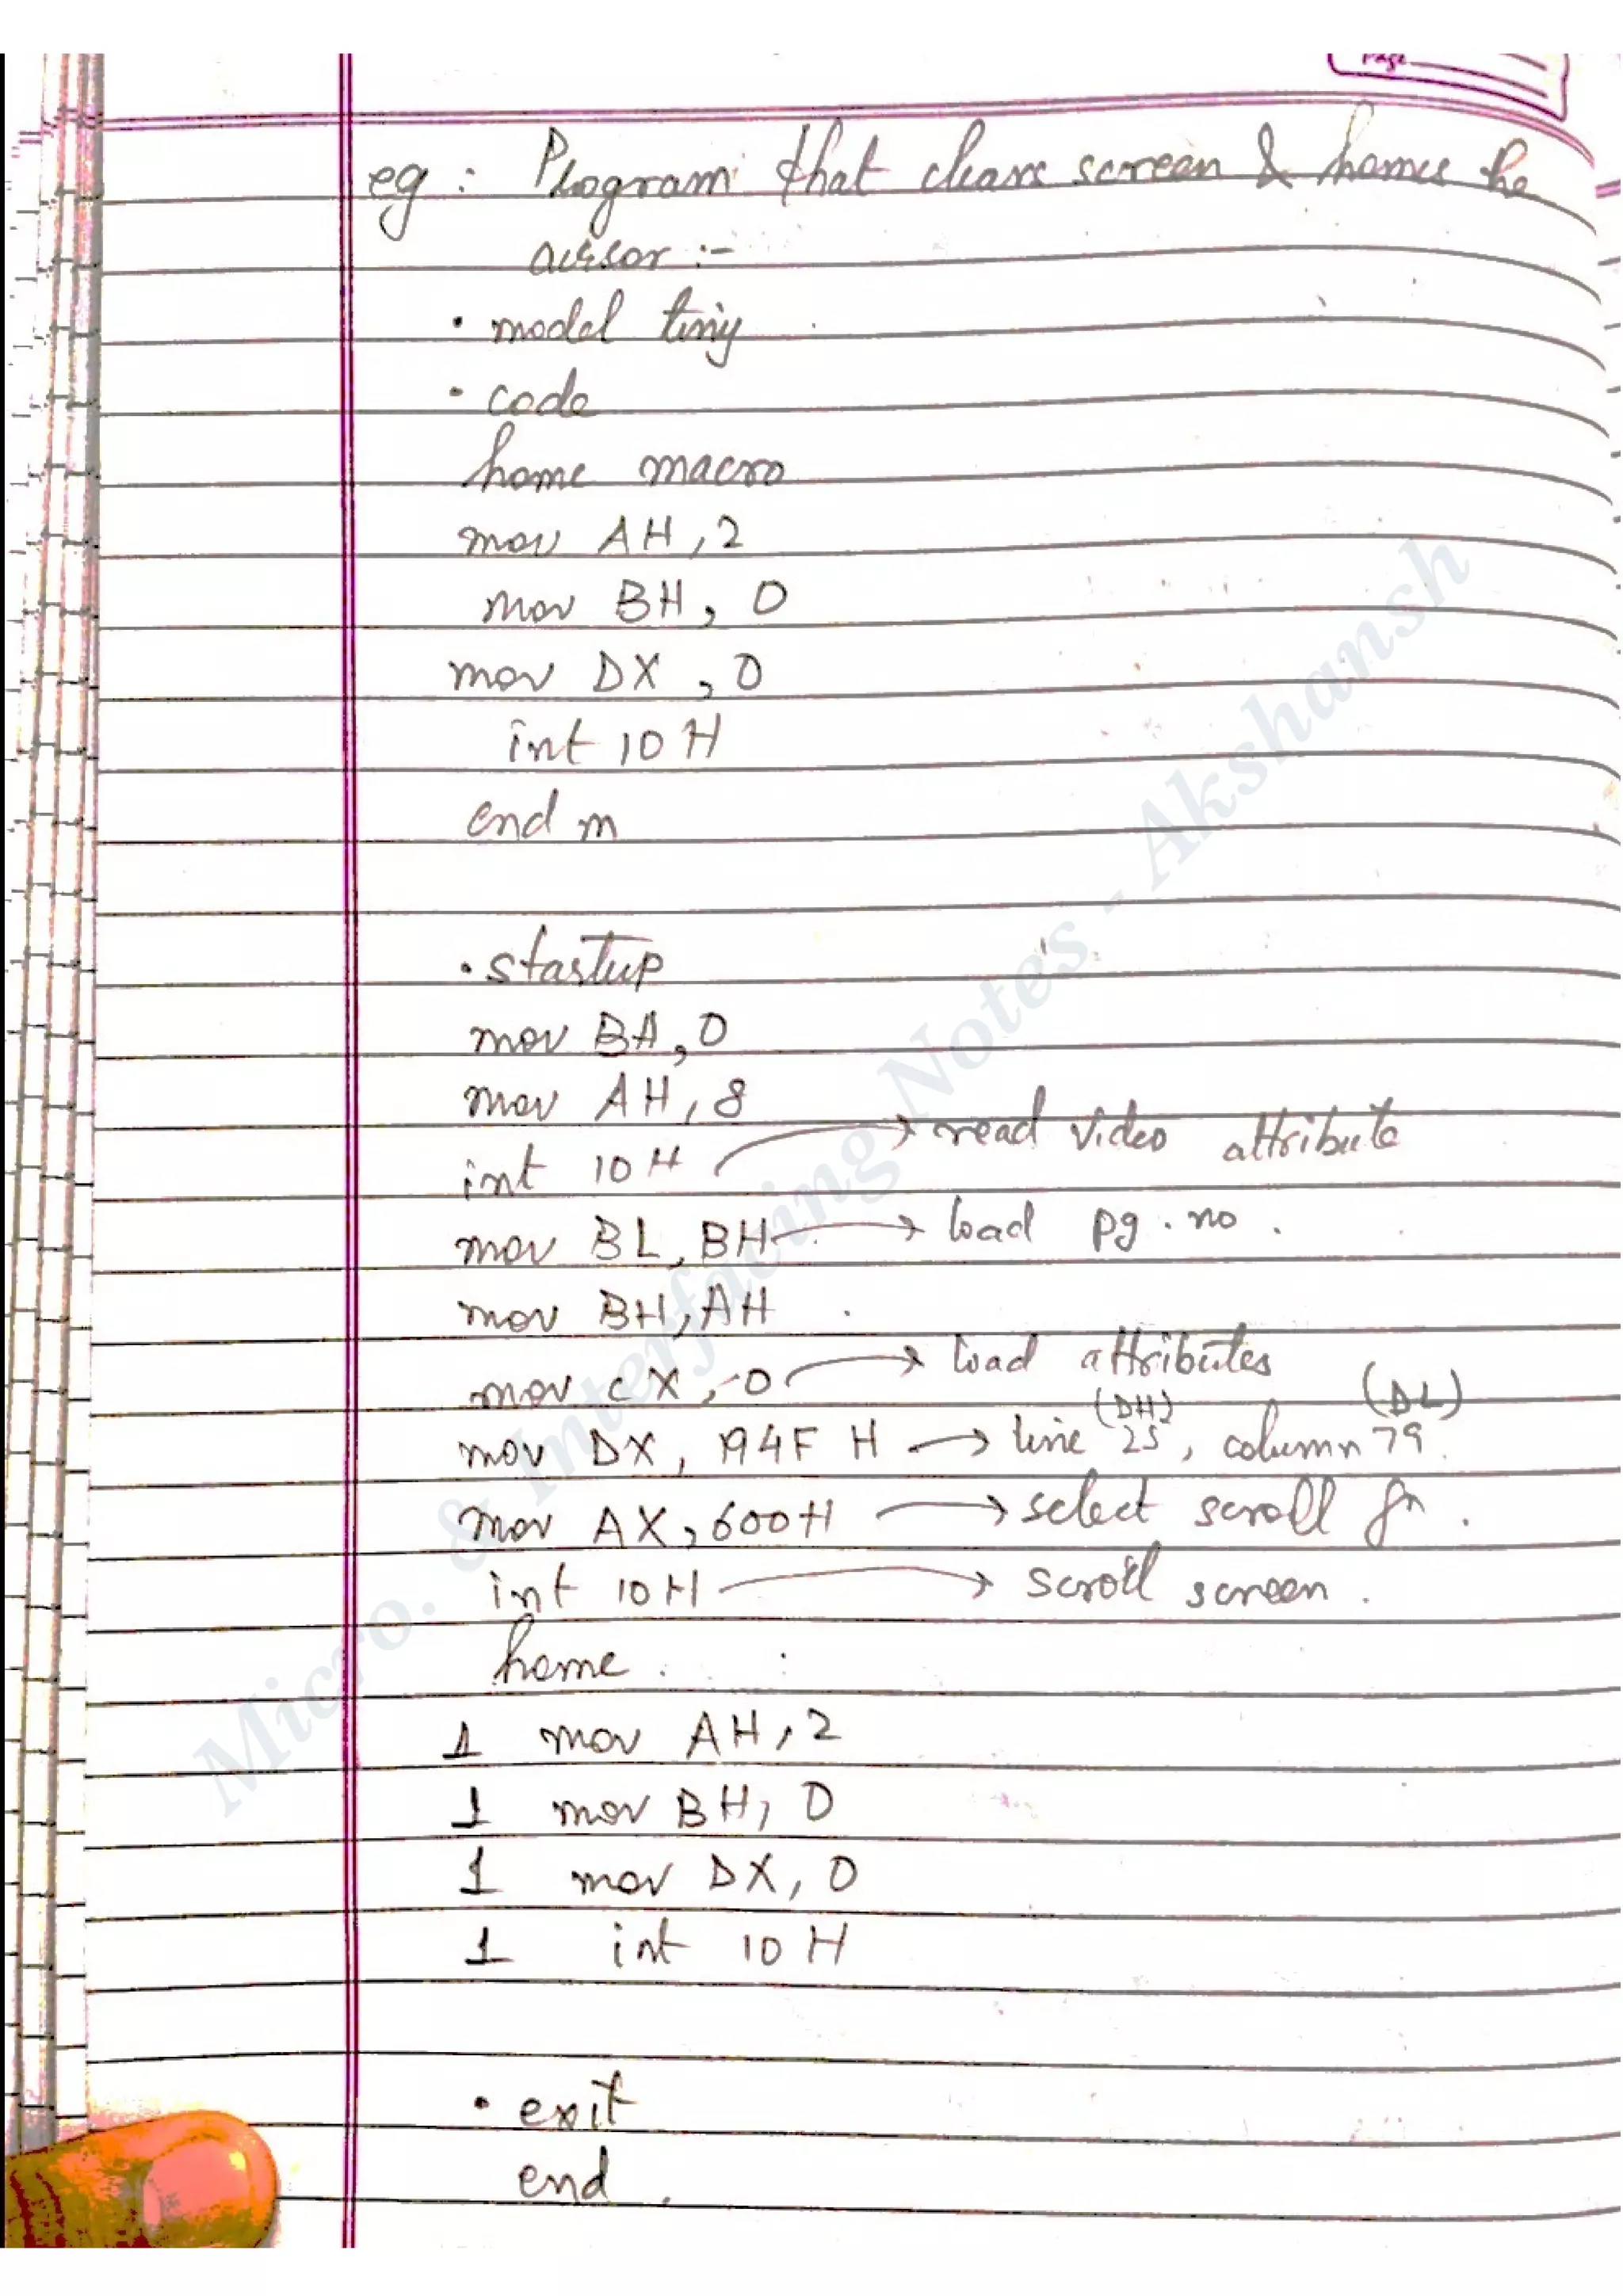 Page
eg : Program that clears screen & homes the
cursor :-
. model tiny
. code
home macro
mov AH, 2
mov BH, 0
mov DX, 0
int 10 H
end m
. startup
mov BH, 0
mov AH, 8
int 10 H → read video attribute
mov BL, BH → load pg. no.
mov BH, AH
mov CX, 0 → load attributes
(DH) (DL)
mov DX, 194F H → line 25, column 79.
mov AX, 600H → select scroll fn.
int 10H → scroll screen.
home.
1 mov AH, 2
1 mov BH, 0
1 mov DX, 0
1 int 10 H
. exit
end.
Micro. & Interfacing Notes - Akshansh